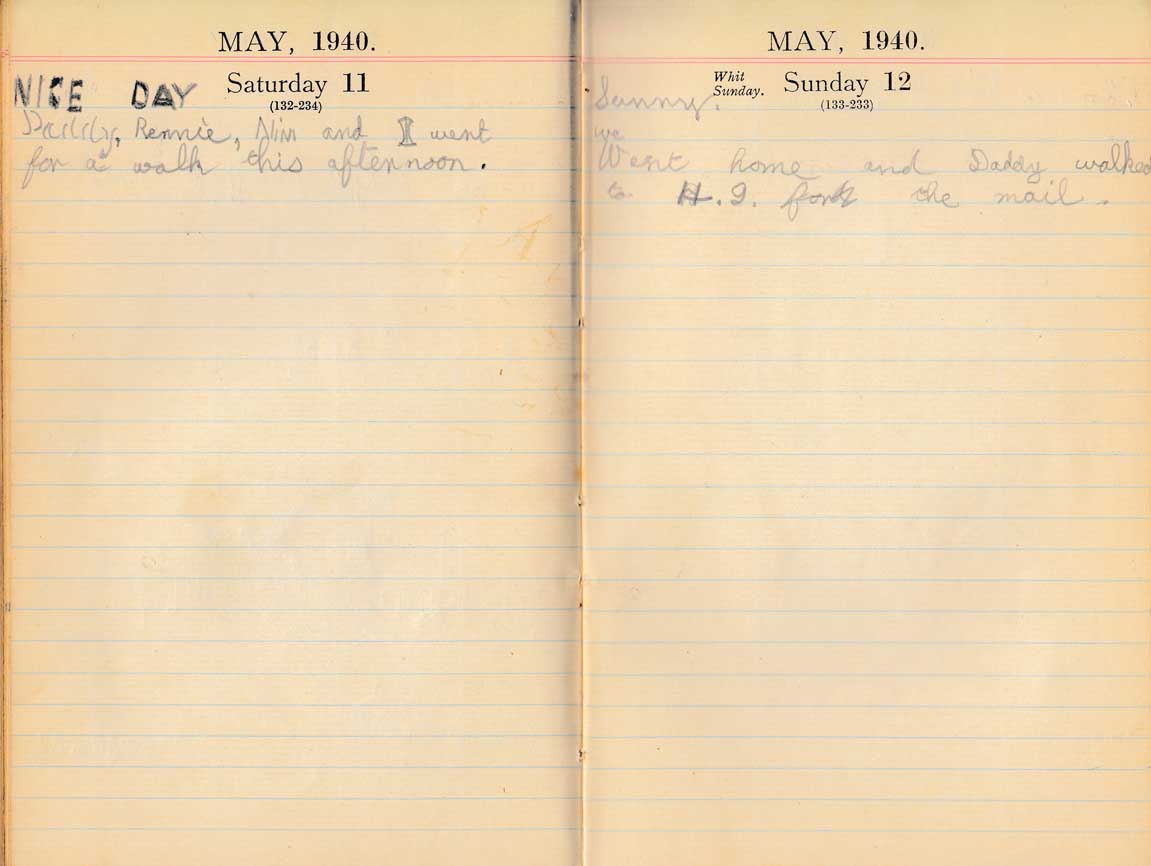 MAY, 1940.
NICE DAY Saturday 11
(132-234)
Daddy, Rennie, and I went
for a walk this afternoon.
MAY, 1940.
Sunny. Whit Sunday. Sunday 12
(133-233)
we
Went home and Daddy walked
to H. the mail.